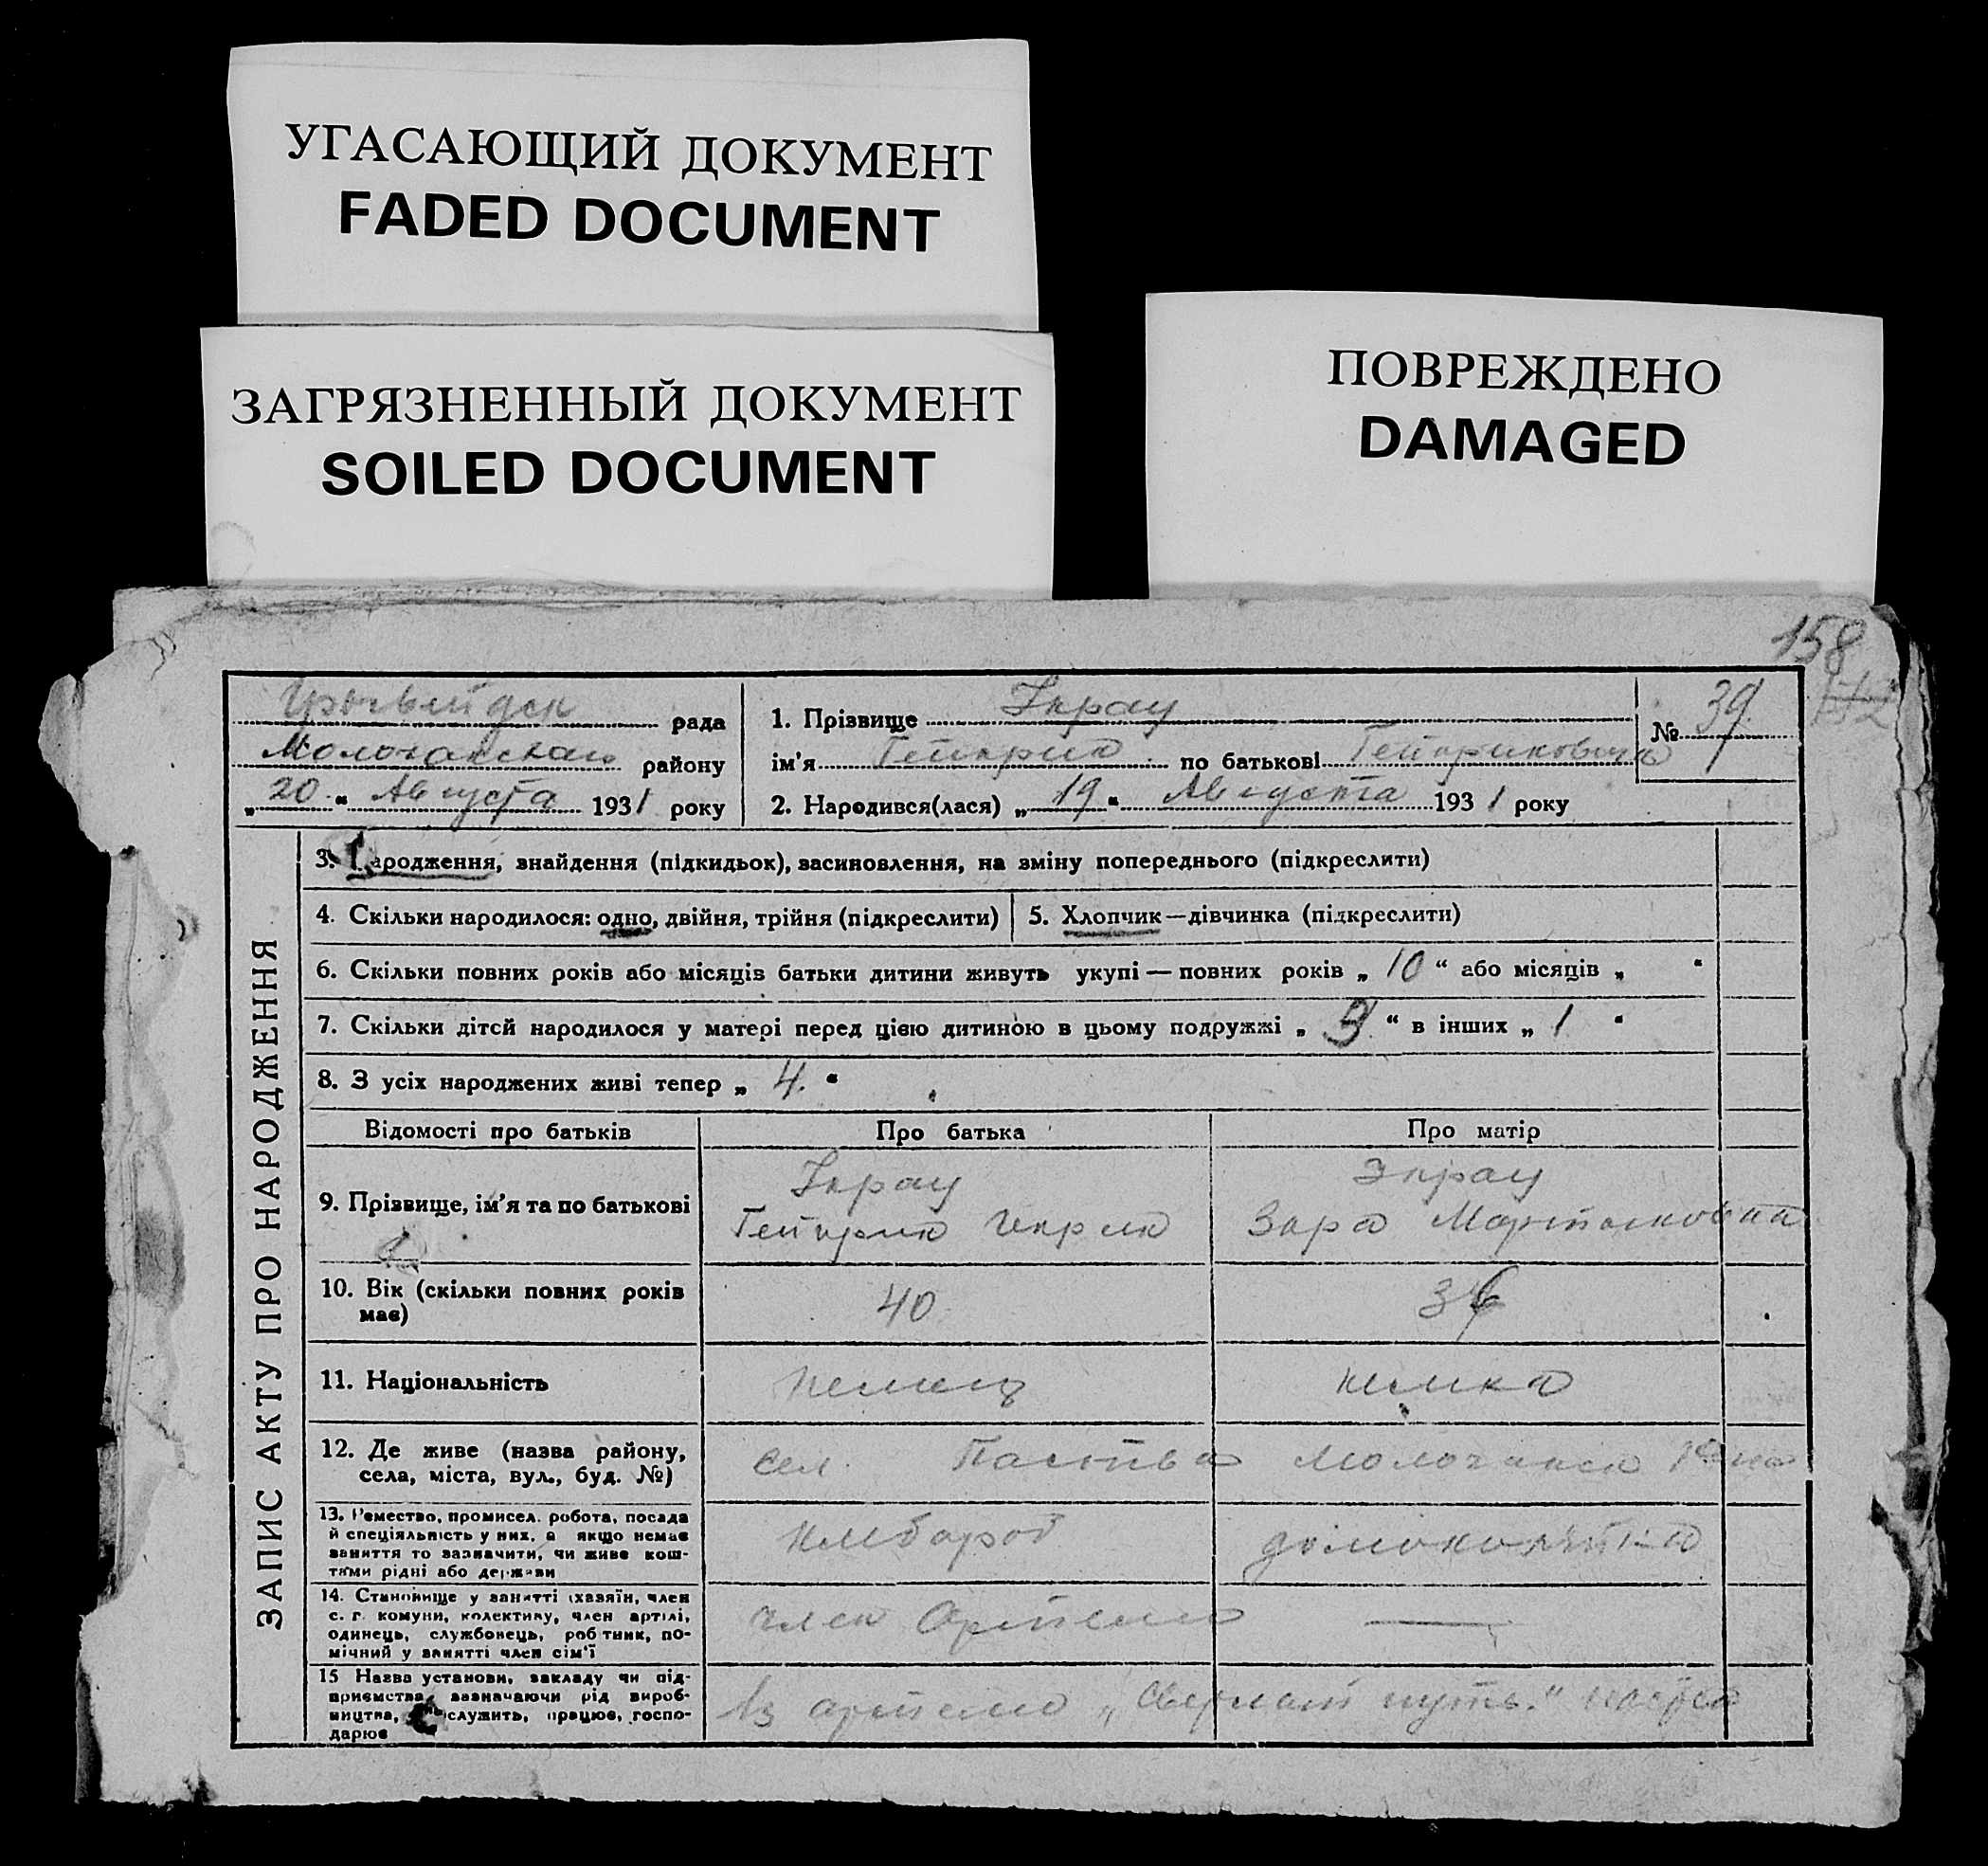 УГАСАЮЩИЙ ДОКУМЕНТ
FADED DOCUMENT
ЗАГРЯЗНЕННЫЙ ДОКУМЕНТ
SOILED DOCUMENT
ПОВРЕЖДЕНО
DAMAGED
158
рада
району
„20“ Августа 1931 року
1. Прізвище Экрау
ім'я Гейнрих по батькові Гейнрихович
№ 39
2. Народився(лася) „19“ Августа 1931 року
ЗАПИС АКТУ ПРО НАРОДЖЕННЯ
3. Народження, знайдення (підкидьок), васиновлення, на зміну попереднього (підкреслити)
4. Скільки народилося: одно, двійня, трійня (підкреслити)
5. Хлопчик—дівчинка (підкреслити)
6. Скільки повних років або місяців батьки дитини живуть укупі — повних років „10“ або місяців „ “
7. Скільки дітей народилося у матері перед цією дитиною в цьому подружжі „3“ в інших „1“
8. З усіх народжених живі тепер „4.“
Відомості про батьків
Про батька
Про матір
9. Прізвище, ім'я та по батькові
Экрау
Гейнрих
Экрау
10. Вік (скільки повних років має)
40
11. Національність
немец
немка
12. Де живе (назва району, села, міста, вул., буд. №)
сел. Паства
13. Ремество, промисел. робота, посада й спеціяльність у них, а якщо немає заняття то зазначити, чи живе коштами рідні або держави
хлебороб
14. Становище у занятті (хазяїн, член с. г. комуни, колективу, член артілі, одинець, службовець, робітник, помічний у занятті член сім'ї
член Артели
—
15 Назва установи, закладу чи підприємства, зазначаючи рід виробництва, служить, працює, господарює
артели
путь."